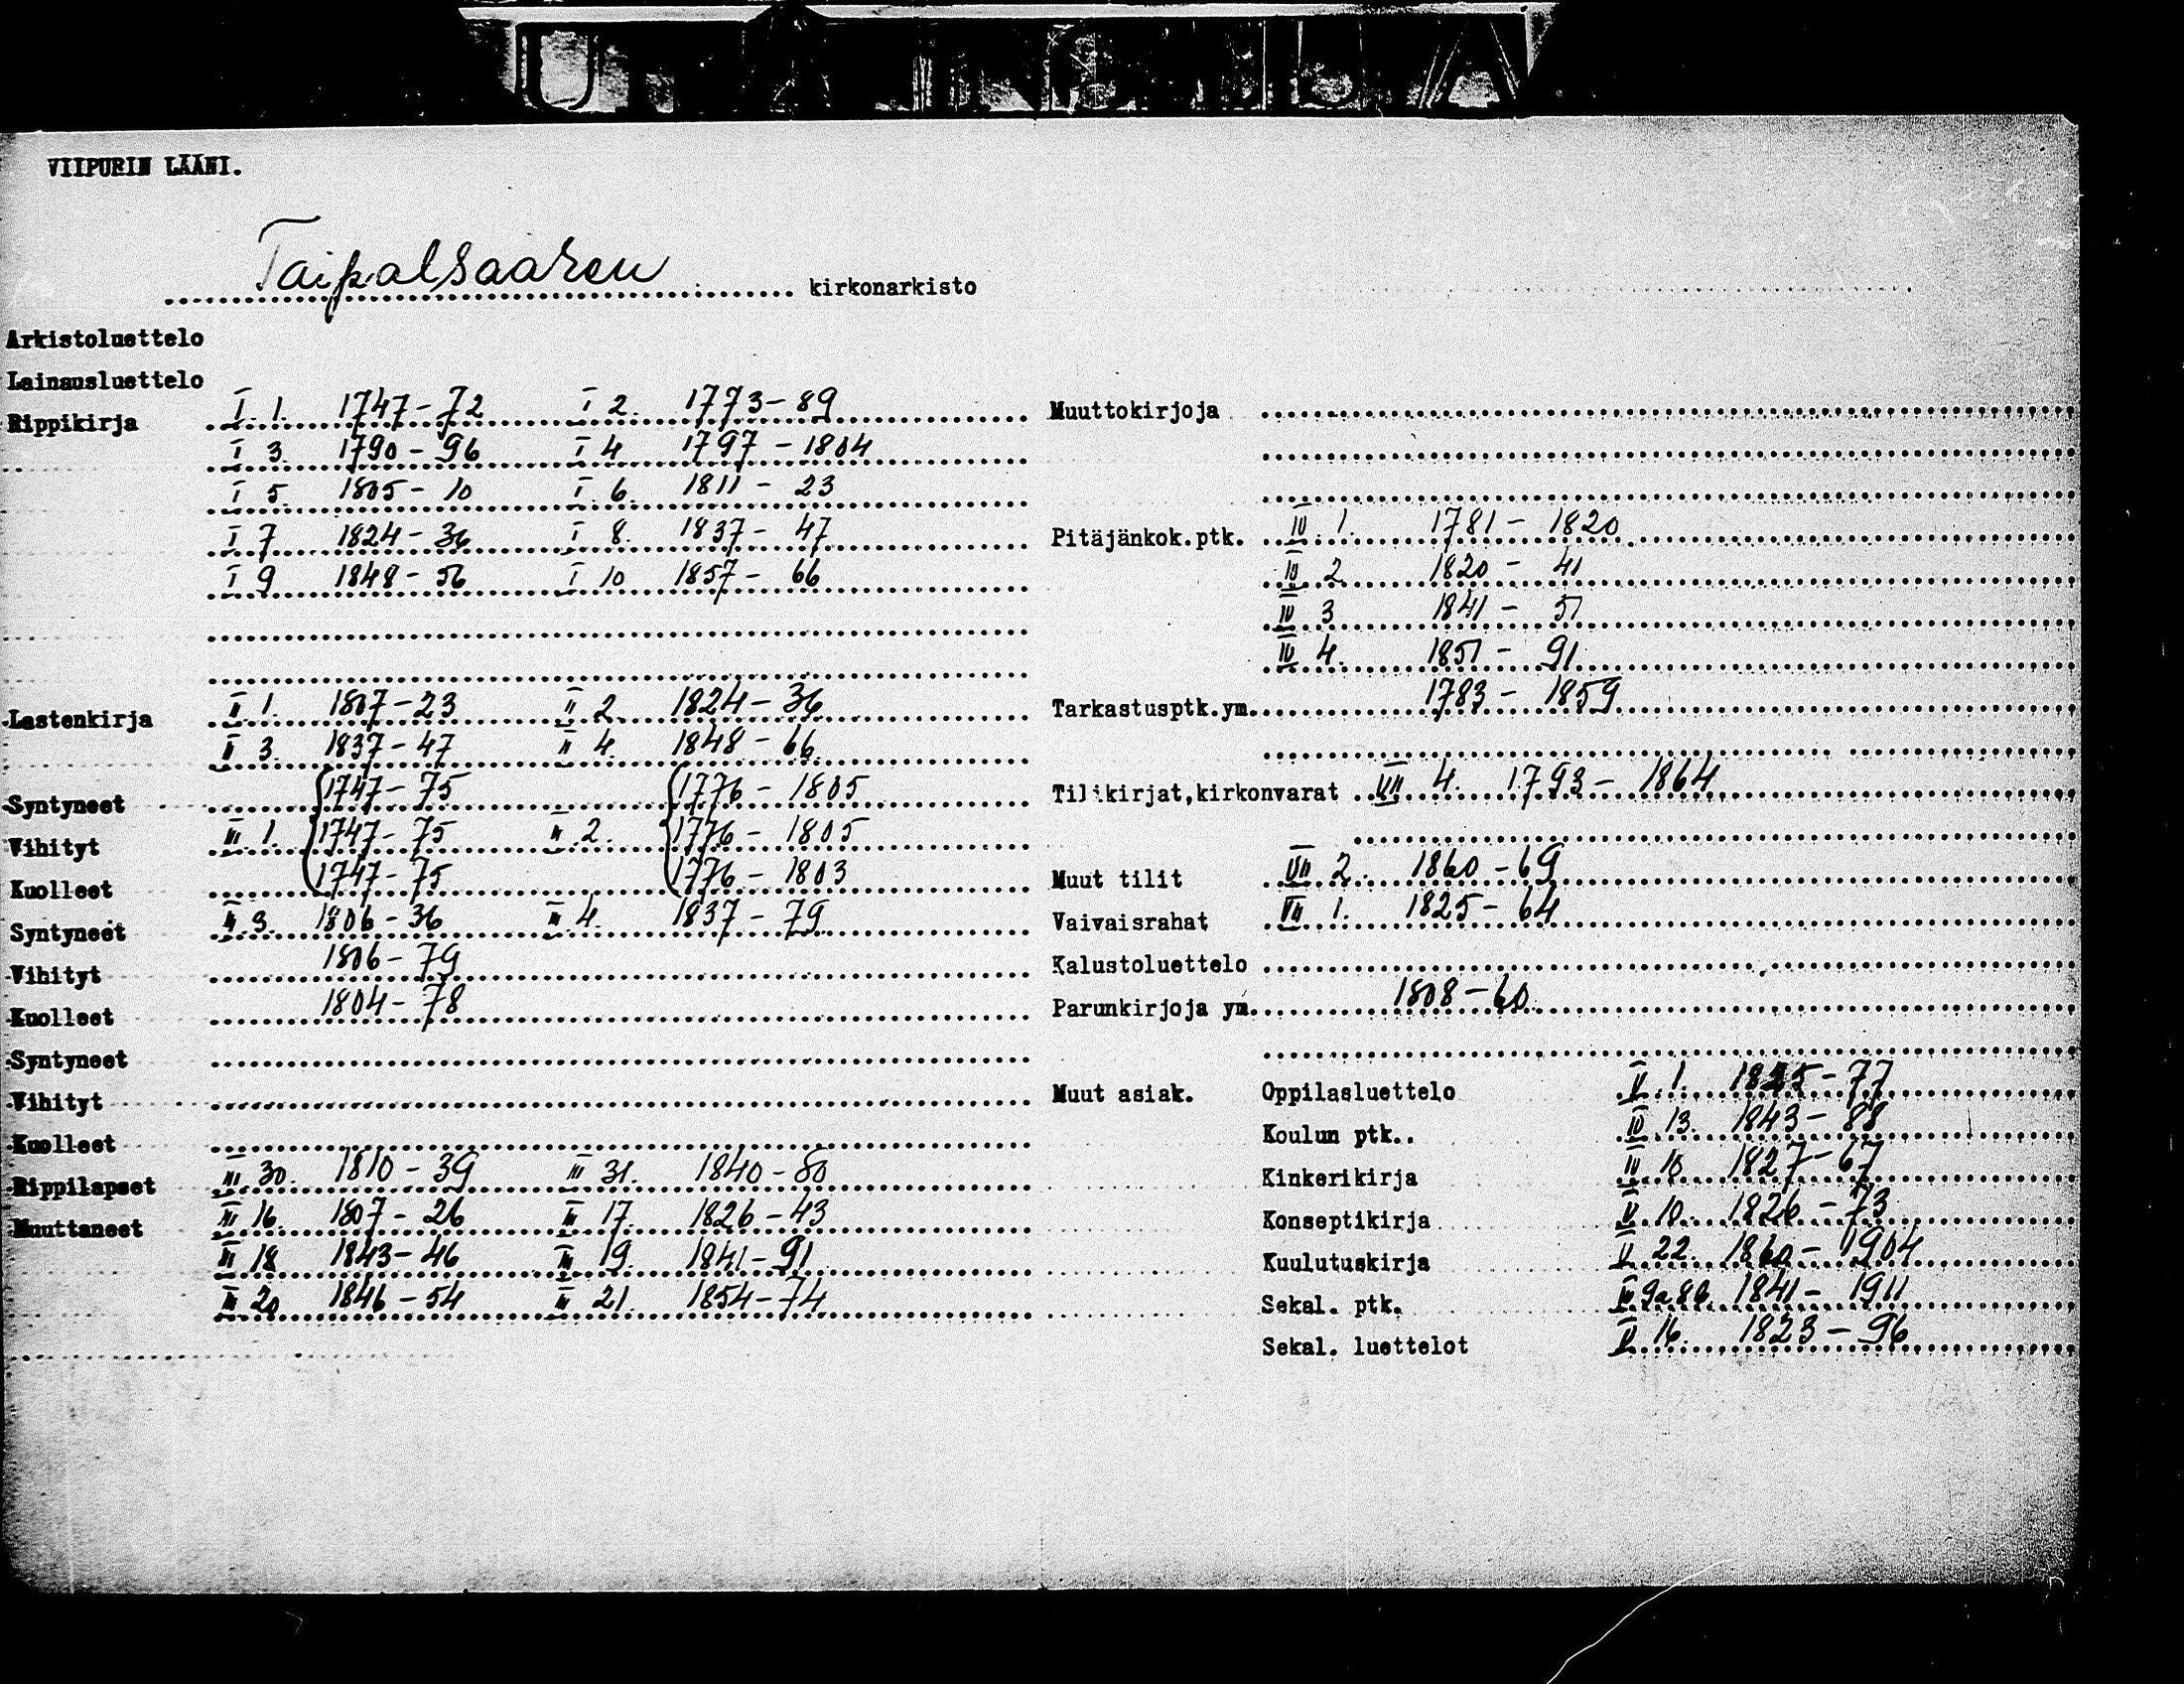 VIIPURIN LÄÄNI.
Taipalsaaren kirkonarkisto
Arkistoluettelo
Lainausluettelo
Rippikirja I 1. 1747-72 I 2. 1773-89
I 3. 1790-96 I 4 1797-1804
I 5. 1805-10 I 6. 1811-23
I 7 1824-36 I 8. 1837-47
I 9 1848-56 I 10 1857-66
Lastenkirja II 1. 1807-23 II 2. 1824-36
II 3. 1837-47 II 4. 1848-66
Syntyneet 1747-75 1776-1805
Vihityt III 1. 1747-75 III 2. 1776-1805
Kuolleet 1747-75 1776-1803
Syntyneet III 3. 1806-36 III 4. 1837-79
Vihityt 1806-79
Kuolleet 1804-78
Syntyneet
Vihityt
Kuolleet
Rippilapset III 30. 1810-39 III 31. 1840-80
Muuttaneet III 16. 1807-26 III 17. 1826-43
III 18 1843-46 III 19. 1841-91
III 20 1846-54 III 21. 1854-74
Muuttokirjoja
Pitäjänkok.ptk. IV 1. 1781-1820
IV 2 1820-41
IV 3 1841-51
IV 4. 1851-91
Tarkastusptk.ym. 1783-1859
Tilikirjat,kirkonvarat VII 4. 1793-1864
Muut tilit VII 2. 1860-69
Vaivaisrahat VII 1. 1825-64
Kalustoluettelo
Parunkirjoja ym. 1808-60
Muut asiak. Oppilasluettelo V 1. -77
Koulun ptk.. IV 13. 1843-88
Kinkerikirja IV 10 1827-67
Konseptikirja V 10. 1826-73
Kuulutuskirja V 22. 1860-1904
Sekal. ptk. 1841-1911
Sekal. luettelot V 16. 1823-96